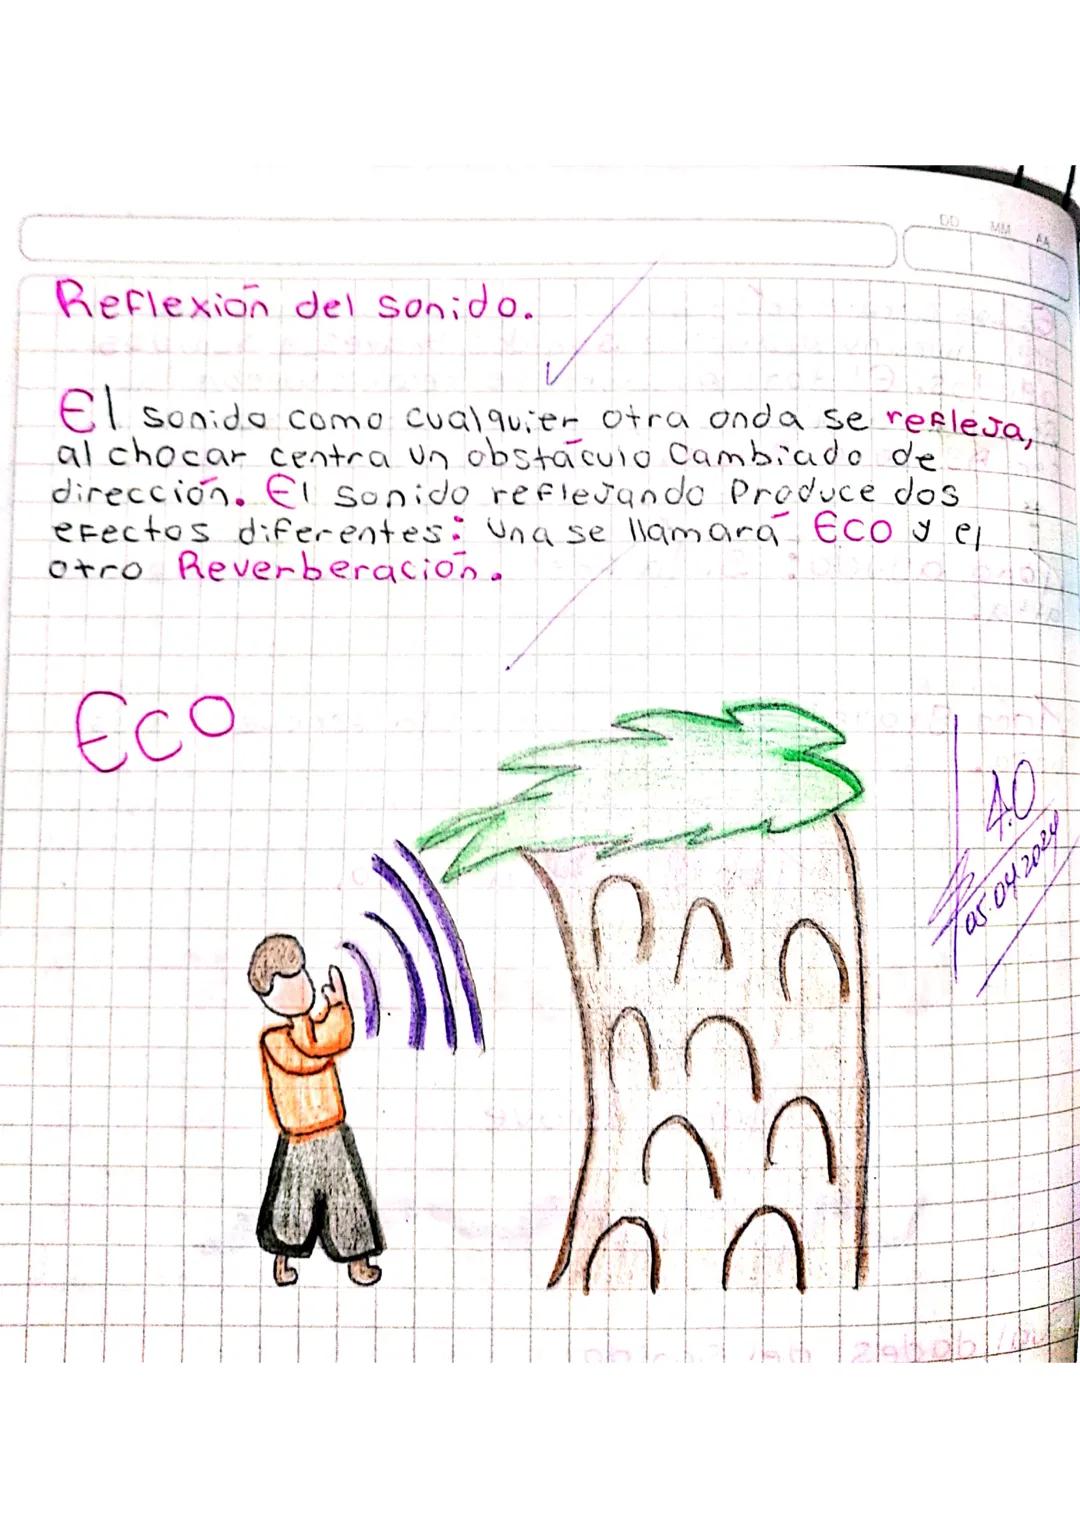 DD MM AA
Reflexión del sonido.
El sonido como cualquier otra onda se refleja,
al chocar centra un obstáculo Cambiado de
dirección. El sonido reflejando Produce dos
efectos diferentes: Una se llamará Eco y el
otro Reverberación.
Eco
4.0
05.04.2024